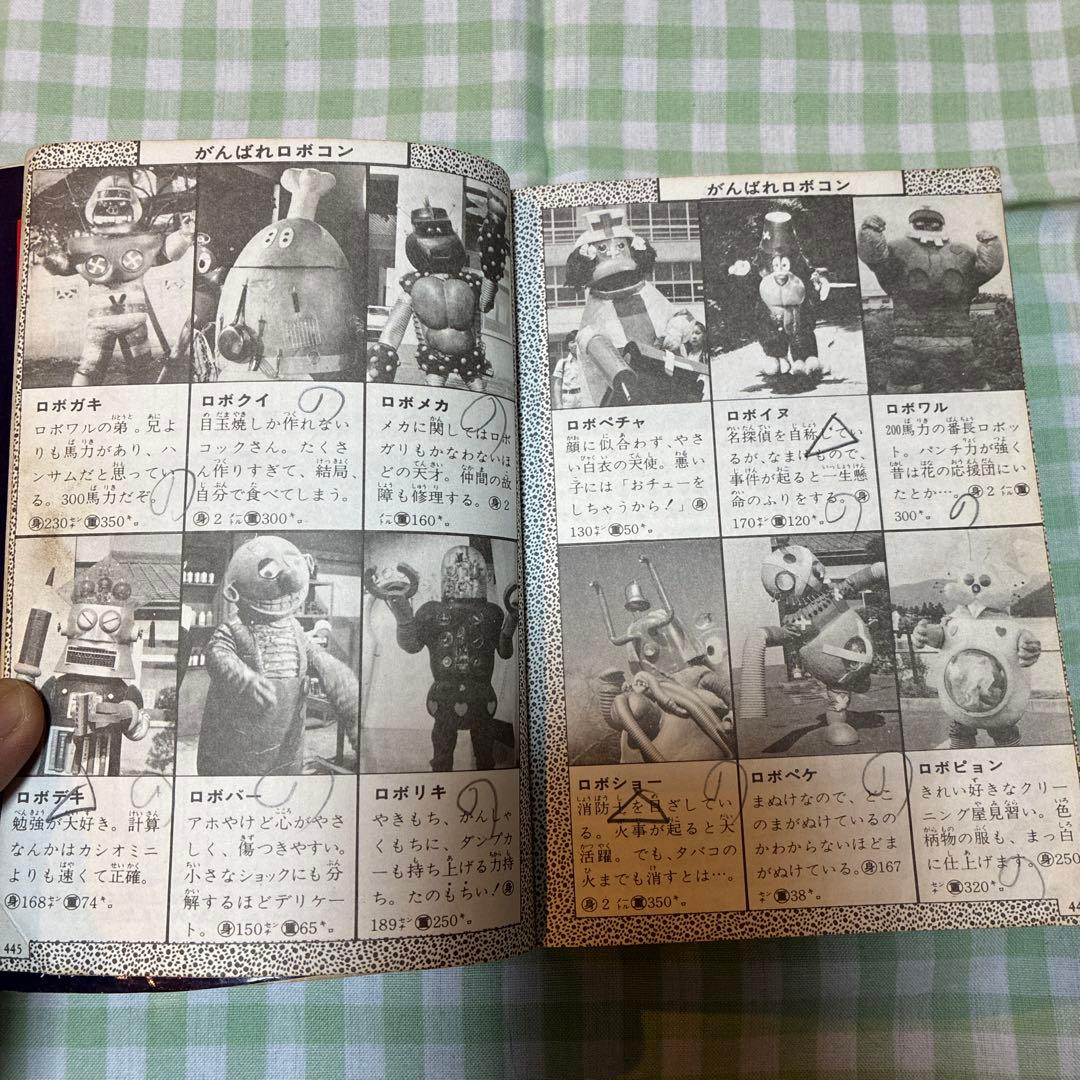 がんばれロボコン
ロボガキ
ロボワルの弟。兄よ
りも馬力があり、ハ
ンサムだと思ってい
る。300馬力だぞ。
身230センチ重350キロ。
ロボクイ
目玉焼しか作れない
コックさん。たくさ
ん作りすぎて、結局、
自分で食べてしまう。
身2メートル重300キロ。
ロボメカ
メカに関してはロボ
ガリもかなわないほ
どの天才。仲間の故
障も修理する。身2
メートル重160キロ。
ロボデキ
勉強が大好き。計算
なんかはカシオミニ
よりも速くて正確。
身168センチ重74キロ。
ロボバー
アホやけど心がやさ
しく、傷つきやすい。
小さなショックにも分
解するほどデリケー
ト。身150センチ重65キロ。
ロボリキ
やきもち、かんしゃ
くもちに、ダンプカ
ーも持ち上げる力持
ち。たのもちい!身
189センチ重250キロ。
445
がんばれロボコン
ロボペチャ
顔に似合わず、やさ
しい白衣の天使。悪い
子には「おチューを
しちゃうから!」身
130センチ重50キロ。
ロボイヌ
名探偵を自称してい
るが、なまけもので、
事件が起ると一生懸
命のふりをする。身
170センチ重120キロ。
ロボワル
200馬力の番長ロボッ
ト。パンチ力が強く
昔は花の応援団にい
たとか…。身2メートル重
300キロ。
ロボショー
消防士を目ざしてい
る。火事が起ると大
活躍。でも、タバコの
火までも消すとは…。
身2メートル重350キロ。
ロボペケ
まぬけなので、どこ
のまがぬけているの
かわからないほどま
がぬけている。身167
センチ重38キロ。
ロボピョン
きれい好きなクリー
ニング屋見習い。色
柄物の服も、まっ白
に仕上げます。身250
センチ重320キロ。